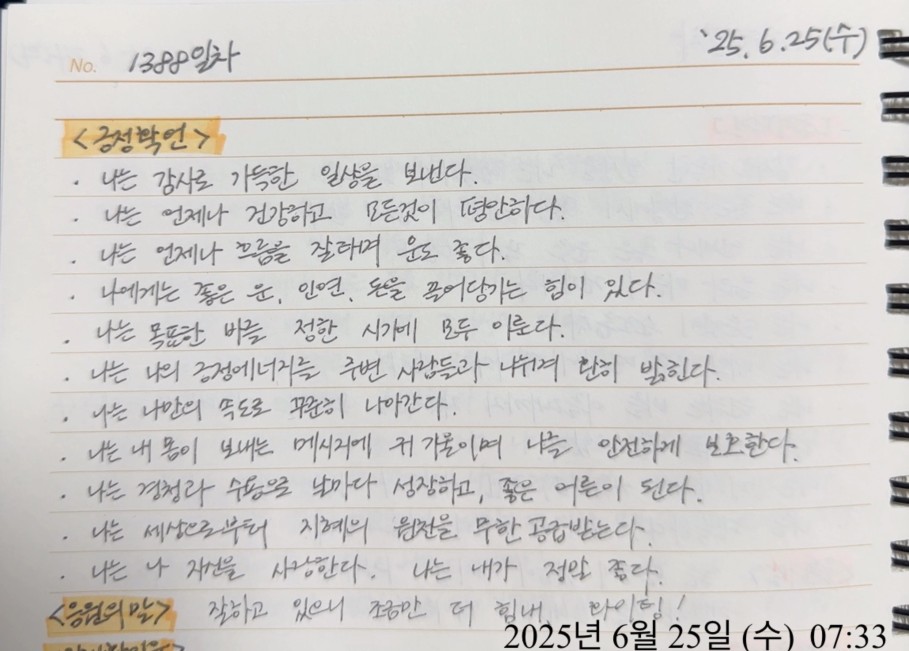 No. 1388일차 '25.6.25(수)
<긍정확언>
· 나는 감사로 가득한 일상을 보낸다.
· 나는 언제나 건강하고 모든것이 평안하다.
· 나는 언제나 흐름을 잘타며 운도 좋다.
· 나에게는 좋은 운, 인연, 돈을 끌어당기는 힘이 있다.
· 나는 목표한 바를 정한 시기에 모두 이룬다.
· 나는 나의 긍정에너지를 주변 사람들과 나눠 환히 밝힌다.
· 나는 나만의 속도로 꾸준히 나아간다.
· 나는 내 몸이 보내는 메시지에 귀 기울이며 나를 안전하게 보호한다.
· 나는 경청과 수용으로 날마다 성장하고, 좋은 어른이 된다.
· 나는 세상으로부터 지혜의 원천을 무한 공급받는다.
· 나는 나 자신을 사랑한다. 나는 내가 정말 좋다.
<응원의 말> 잘하고 있으니 조금만 더 힘내, 화이팅!
2025년 6월 25일 (수) 07:33